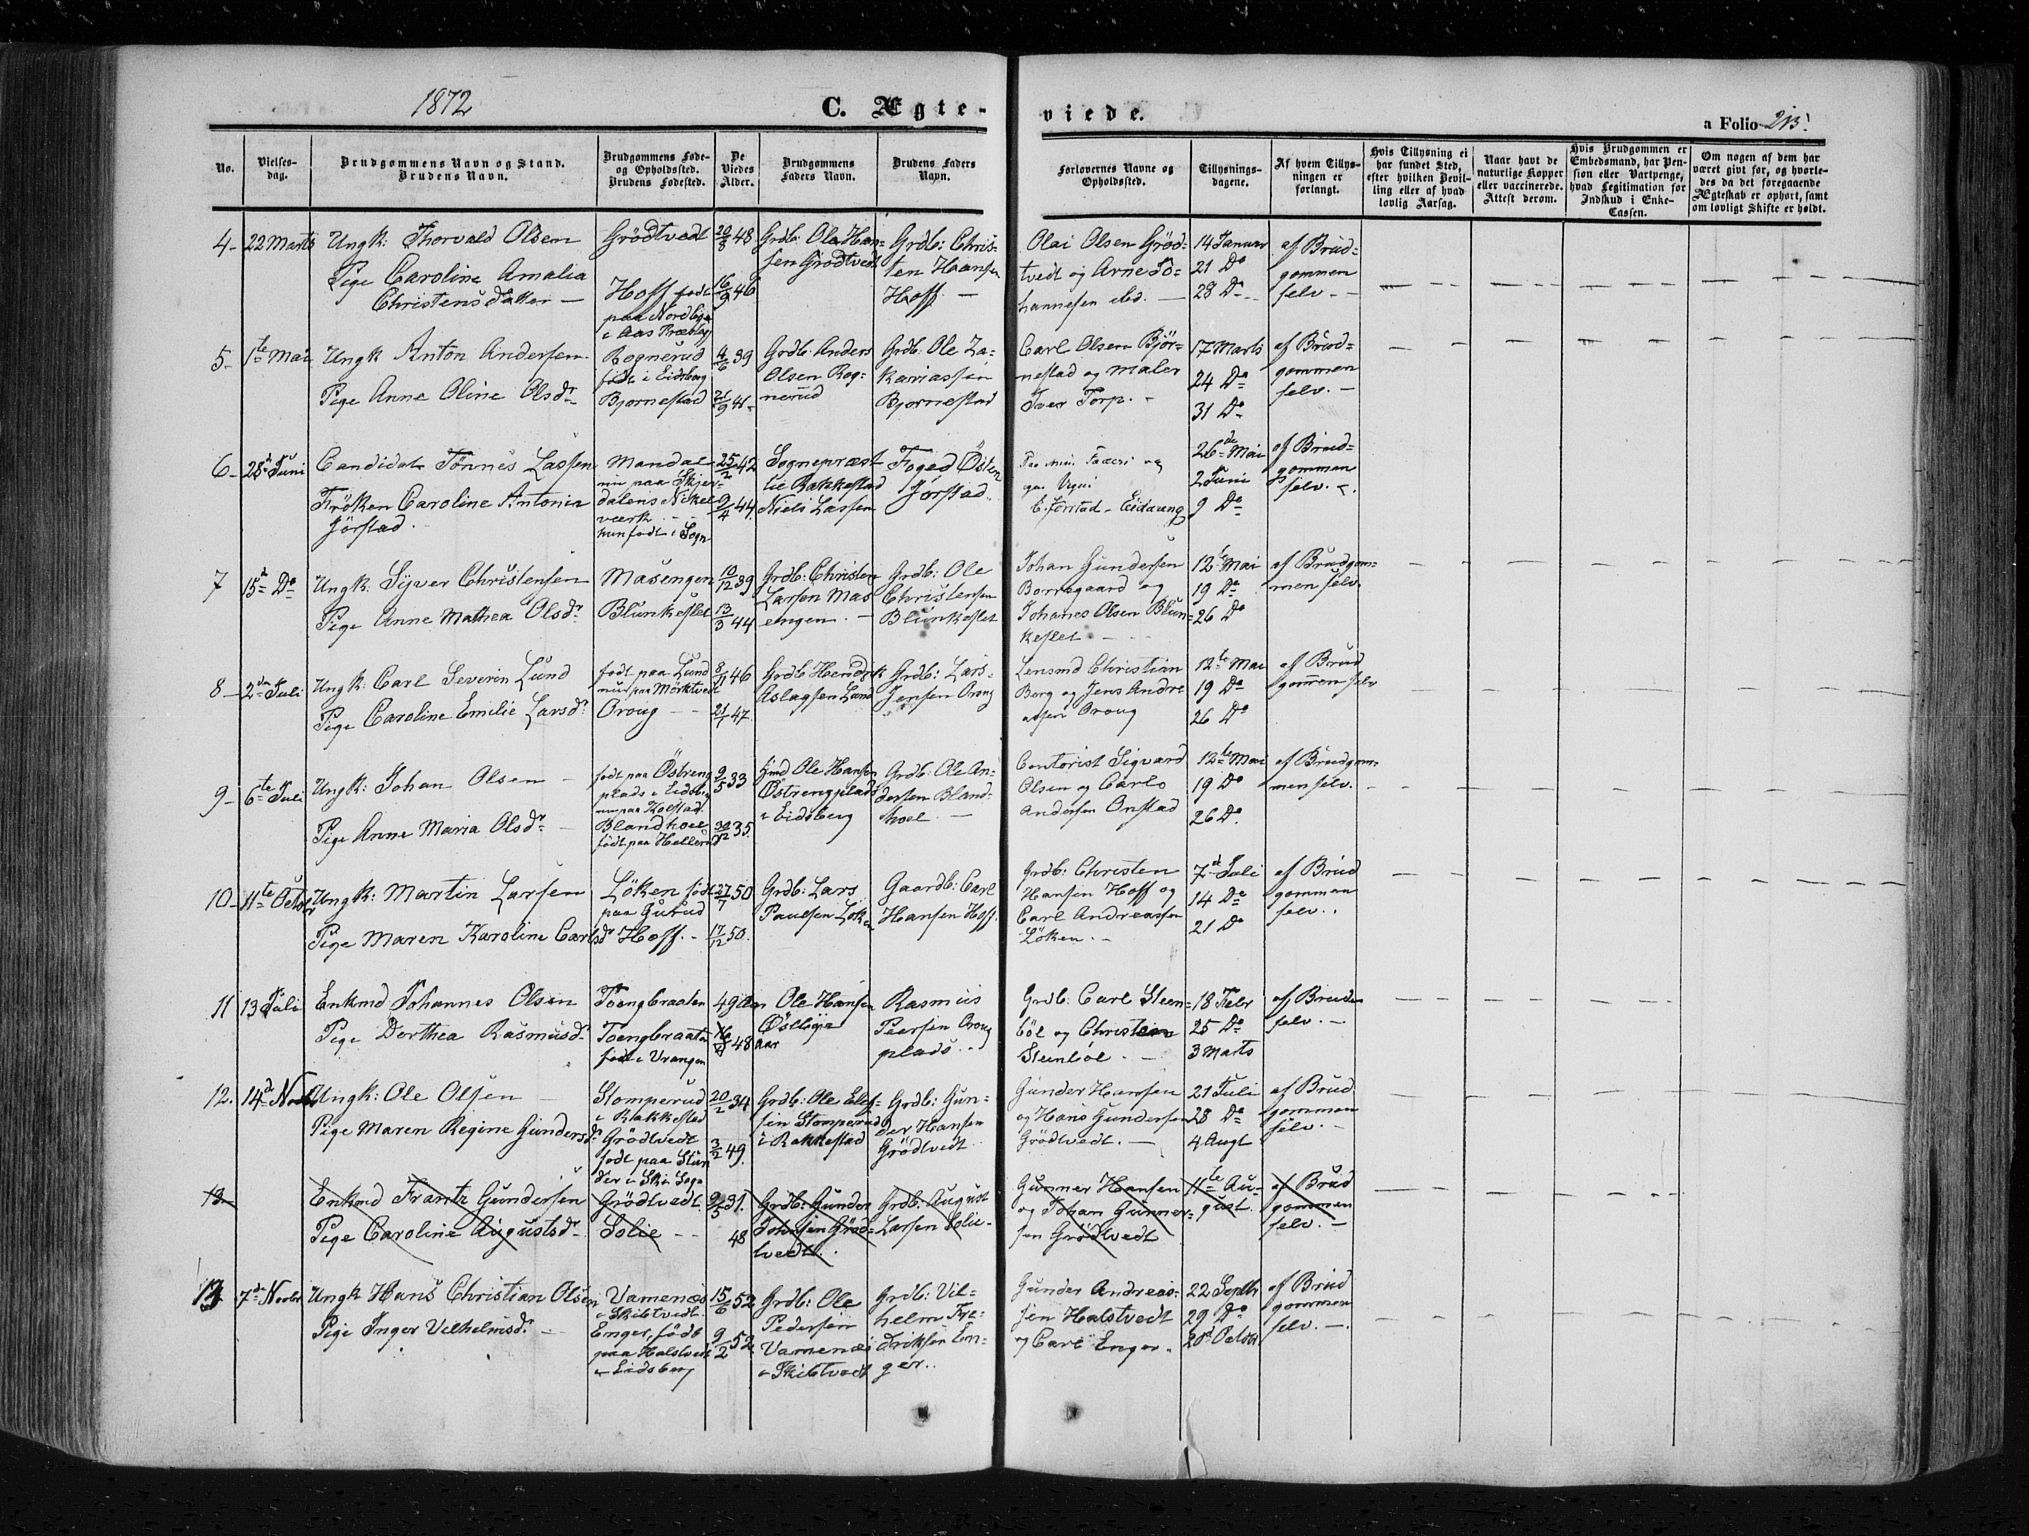 1872
C. Ægte-
viede.
a Folio 213.
No.
Vielses-
dag.
Brudgommens Navn og Stand.
Brudens Navn.
Brudgommens Føde-
og Opholdssted.
Brudens Fødested.
De
Viedes
Alder.
Brudgommens
Faders Navn.
Brudens Faders
Navn.
Forlovernes Navne og
Opholdssted.
Tillysnings-
dagene.
Af hvem Tillys-
ningen er
forlangt.
Hvis Tillysning ei
har fundet Sted,
efter hvilken Bevil-
ling eller af hvad
lovlig Aarsag.
Naar havt de
naturlige Kopper
eller vaccinerede.
Attest derom.
Hvis Brudgommen er
Embedsmand, har Pen-
sion eller Vartpenge,
hvad Legitimation for
Indskud i Enke-
Cassen.
Om nogen af dem har
været givt før, og hvorle-
des da det foregaaende
Ægteskab er ophørt, samt
om lovligt Skifte er holdt.
4 - 22 Marts
Ungk: Thorvald Olsen
Pige Caroline Amalia
Christensdatter -
Grödtvedt
Hoff født
paa Nordbye
i Aas Præstegj
20/8 48
16/9 46
Grdb: Ole Han-
sen Grödtvedt
Grdb: Chris-
ten Hansen
Hoff. -
Olai Olsen Gröd-
tvedt og Arne Jo-
hannesen ibd. -
14 Januar
21 Do
28 Do
af Brud-
gommen
selv. -
5 - 1te Mai
Ungk Anton Andersen
Pige Anne Oline Olsdr
Rognerud
født i Eidsberg
Bjørnestad
4/6 39
21/9 41
Grdb: Anders
Olsen Rog-
nerud
Grdb: Ole Za-
kariassen
Bjørnestad
Carl Olsen Bjør-
nestad og maler
Iver Torp. -
17 Marts
24 Do
31 Do
af Brud-
gommen
selv. -
6 - 28de Juni
Candidat Tönnes Lassen
Fröken Caroline Antonia
Jörstad.
Mandal
nu paa Skjer-
dalens Nikel-
værk
hun født i Sogn
25/2 42
2/4 44
Sognepræst
til Rakkestad
Niels Lassen
Foged Östen
Jörstad.
E. Jörstad - Eidsvang
26de Mai
2 Juni
9 Do
af Brud-
gommen
selv. -
7 15d Do
Ungk: Syver Christensen
Pige Anne Mathea Olsdr
Masengen
Blunkeflet
10/12 39
13/3 44
Grdb: Christen
Larsen Mas
engen. -
Grdb: Ole
Christensen
Blunkeflet
Johan Gundersen
Borregaard og
Johanes Olsen Blun-
keflet -
12te Mai
19 Do
26 Do
af Brudgom-
men selv.
8 - 2den Juli
Ungk: Carl Severin Lund
Pige Caroline Emilie Larsdr
født paa Lund
nu paa Mörktvedt
Oroug - -
8/11 46
21/7 47.
Grdb Hendrik
Aslagsen Lund
Grdb: Lars
Jensen Oroug
Lensmd Christian
Borg og Jens Andre
assen Oroug
12te Mai
19 Do
26 Do
af Brud
gommen selv
9 - 6te Juli
Ungk: Johan Olsen -
Pige Anne Maria Olsdr
født paa Östreng
plads i Eidsberg
nu paa Kolstad
Blandhoel
født paa Hellerud
9/5 33
30/12 35.
Hmd Ole Hansen
Östrengplads
i Eidsberg
Grdb: Ole An-
dersen Bland-
hoel -
Contorist Sigvard
Olsen og Carlo
Andersen Onstad
12te Mai
19 Do
26 Do.
af Brudgom-
men selv.
10 - 11te Octob
Ungk: Martin Larsen
Pige Maren Karoline Carlsdr
Löken født
paa Gutud
Hoff. -
27/7 50
17/12 50.
Grdb: Lars
Paulsen Løken
Gaardb: Carl
Hansen Hoff.
Grdb: Christen
Hansen Hoff og
Carl Andreassen
Löken. -
7d Juli
14 Do
21 Do
af Brud
gommen
selv. .
11 13 Juli
Enkmd Johannes Olsen
Pige Dorthea Rasmusdr
Toengbraaten
Toengbraaten
født i Vrangen
49 Aar
48
Ole Hansen
Rasmus
Peersen Oroug
plads. -
Grdb: Carl Steen-
böl og Christian
Steenböl. -
18 Febr
25 Do
3 Marts
af Bruden
selv. -
12. 14d Novb
Ungk: Ole Olsen -
Pige Maren Regine Gundersdr
Stomperud
i Rakkestad
Grödtvedt
født paa Stun
der i Ski Sogn
20/2 34
3/2 49.
Grdb: Ole Elef-
sen Stomperud
i Rakkestad
Grdb: Gun-
der Hansen
Grödtvedt
Gunder Hansen
og Hans Gundersen
Grödtvedt. -
21 Juli
28 Do
4 Augt
af Brud
gommen
selv. -
13
Enkmd Frantz Gundersen
Pige Caroline Augustsdr
Grödtvedt
Solie - -
9/5 31.
48
Grdb: Gunder
Johnsen Gröd-
tvedt.
Grdb: August
Larsen Solie -
Gunner Hansen
og Johan Gunner-
sen Grödtvedt
11te Au-
gust.
af Brud
gommen
selv. -
13 7de Novbr
Ungk Hans Christian Olsen
Pige Inger Vilhelmsdr -
Vamenæs
i Skibtvedt
Enger, født
paa Halstvedt
i Eidsberg
15/6 52
9/2 52
Grdb: Ole
Pedersen
Vamenæs
i Skibtvedt
Grdb: Vil-
helm Fre-
driksen En-
ger. .
Gunder Andreas-
sen Halstvedt
og Carl Enger.
22 Septbr
29 Do
20d Octobr
af Brud
gommen
selv. -